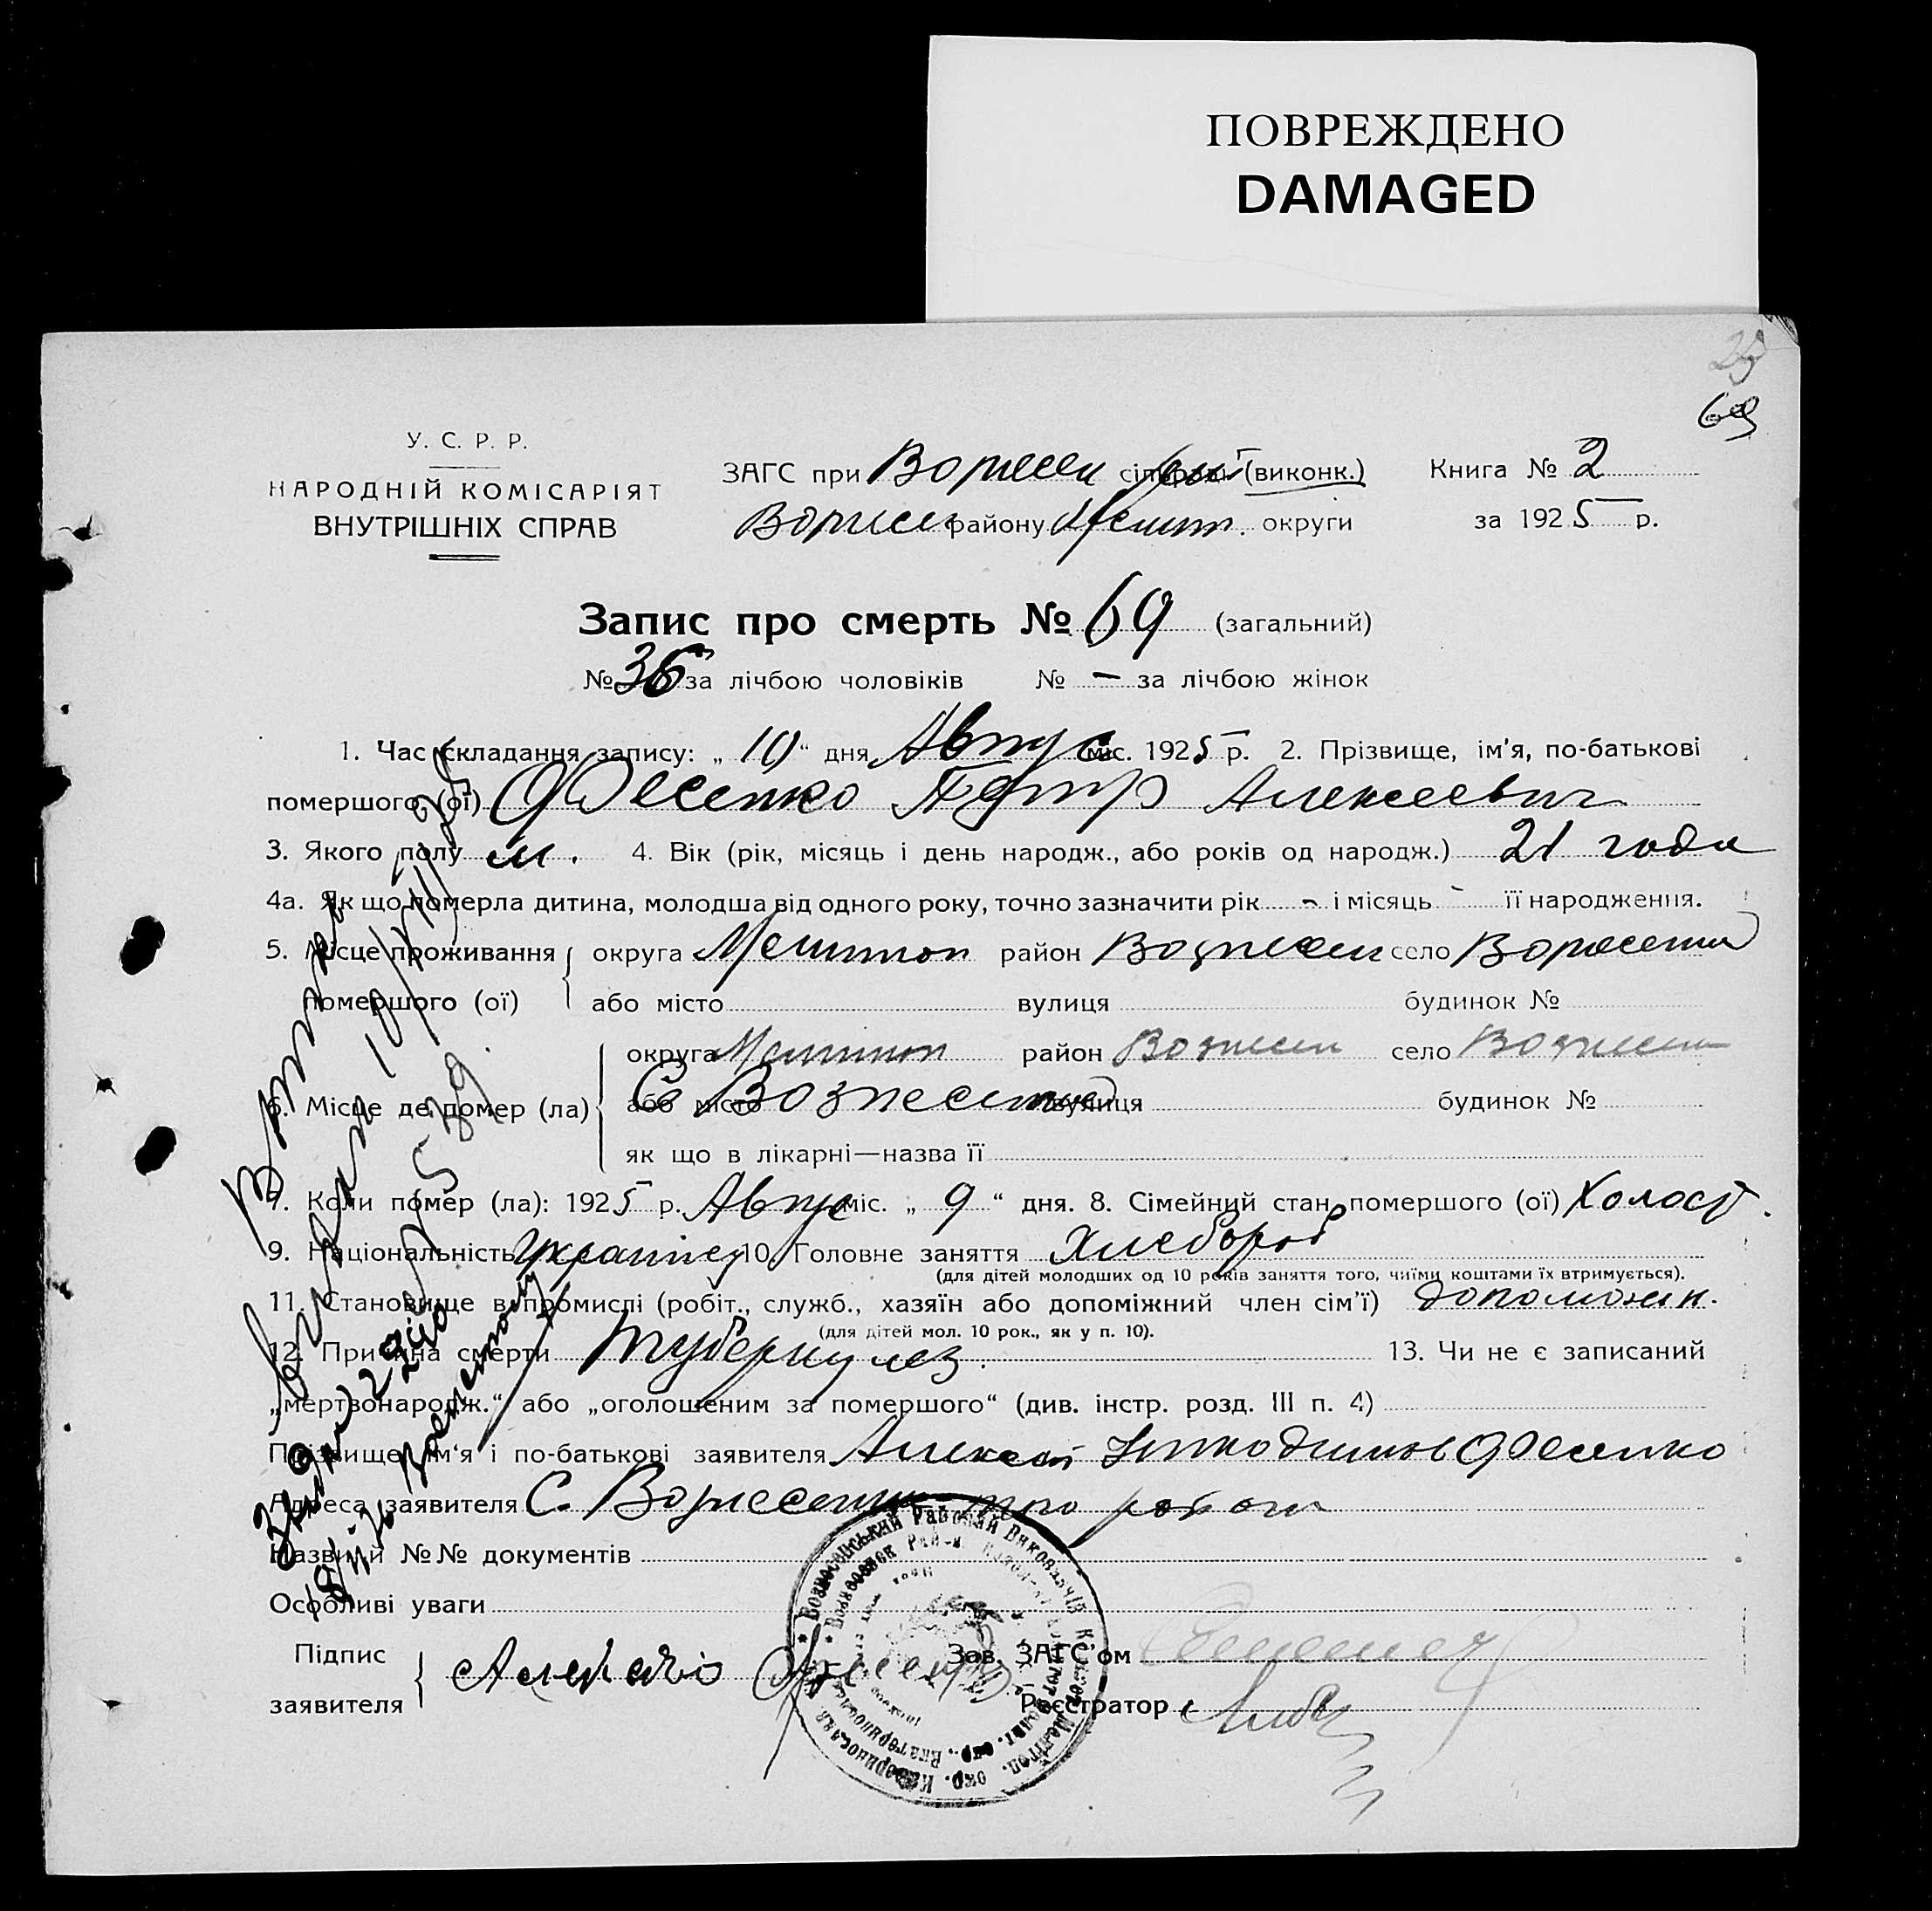 ПОВРЕЖДЕНО
DAMAGED
69
У. С. Р. Р.
НАРОДНІЙ КОМІСАРІЯТ
ВНУТРІШНІХ СПРАВ
ЗАГС при Вознесен сільраді (виконк.)
Книга № 2
Вознесен району Меліт. округи
за 1925 р.
Запис про смерть № 69 (загальний)
№ 36 за лічбою чоловіків № – за лічбою жінок
1. Час складання запису: „10“ дня Август міс. 1925 р. 2. Прізвище, ім'я, по-батькові
помершого (ої) Фесенко Петр Алексеевич
3. Якого полу м. 4. Вік (рік, місяць і день народж., або років од народж.) 21 года
4а. Як що померла дитина, молодша від одного року, точно зазначити рік - і місяць - її народження.
5. Місце проживання округа Мелитоп район Вознесен село Вознесенка
помершого (ої) або місто вулиця будинок №
округа Мелитоп район Вознесен село Вознесен
6. Місце де помер (ла) або місто С Вознесенка вулиця будинок №
як що в лікарні—назва її
7. Коли помер (ла): 1925 р. Август міс. „9“ дня. 8. Сімейний стан помершого (ої) Холост.
9. Національність Украинец 10. Головне заняття Хлебороб
(для дітей молодших од 10 років заняття того, чиїми коштами їх втримується).
11. Становище в промислі (робіт., служб., хазяїн або допоміжний член сім'ї) допоможн.
(для дітей мол. 10 рок., як у п. 10).
12. Причина смерти туберкулез. 13. Чи не є записаний
„мертвонародж.“ або „оголошеним за помершого“ (див. інстр. розд. III п. 4)
Прізвище ім'я і по-батькові заявителя Алексей Никодимов Фесенко
Адреса заявителя С. Вознесенка
Назви й №№ документів
Особливі уваги
Підпис Алексей Фесенко Зав. ЗАГС'ом
заявителя Реєстратор